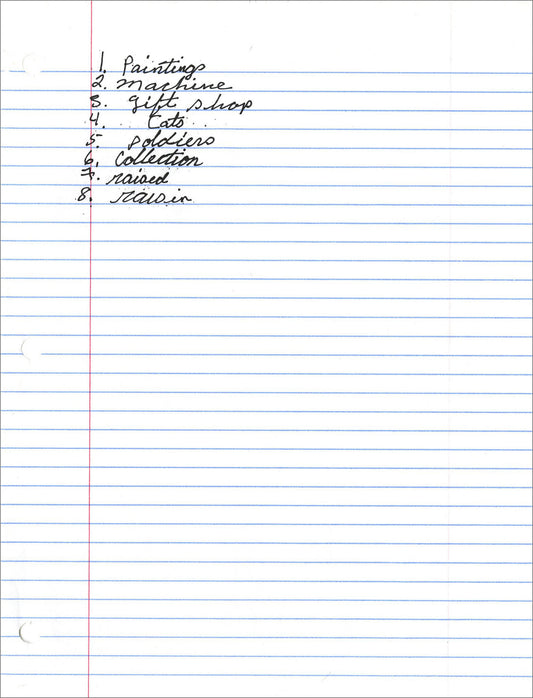 1. Paintings
2. machine
3. gift shop
4. Cats
5. soldiers
6. Collection
7. raised
8. raisin